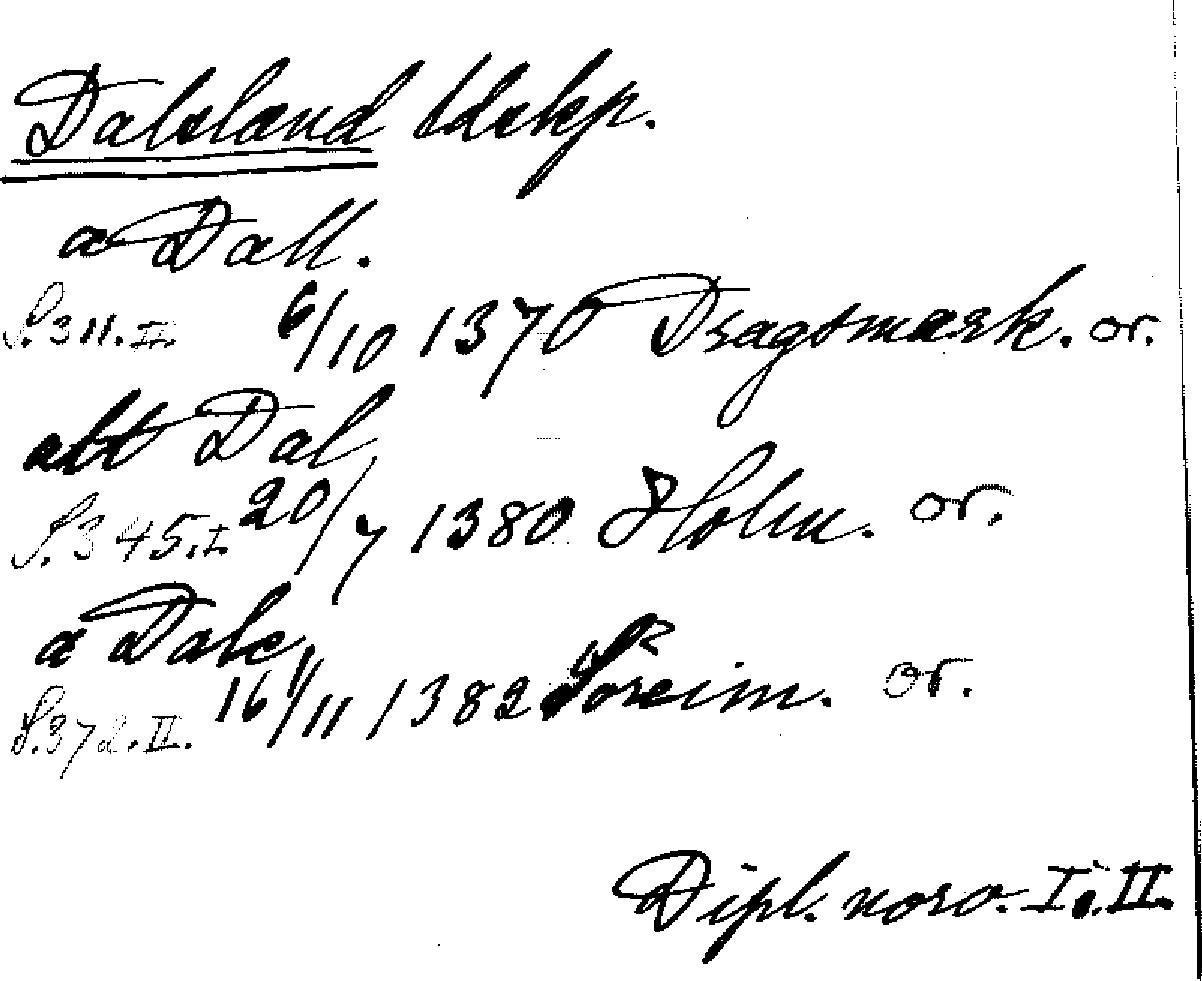 Dalsland ldskp.
a Dall.
S. 311. II. 6/10 1370 Dragsmark. or.
att Dal
S. 345. I. 20/7 1380 Holm. or.
a Dale
S. 372. II. 16/11 1382 Soreim. or.
Dipl. norv. I o. II.